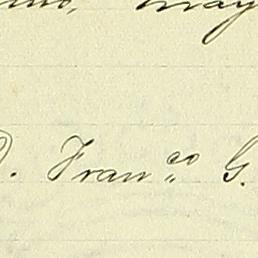 may
D. Fran.co G.